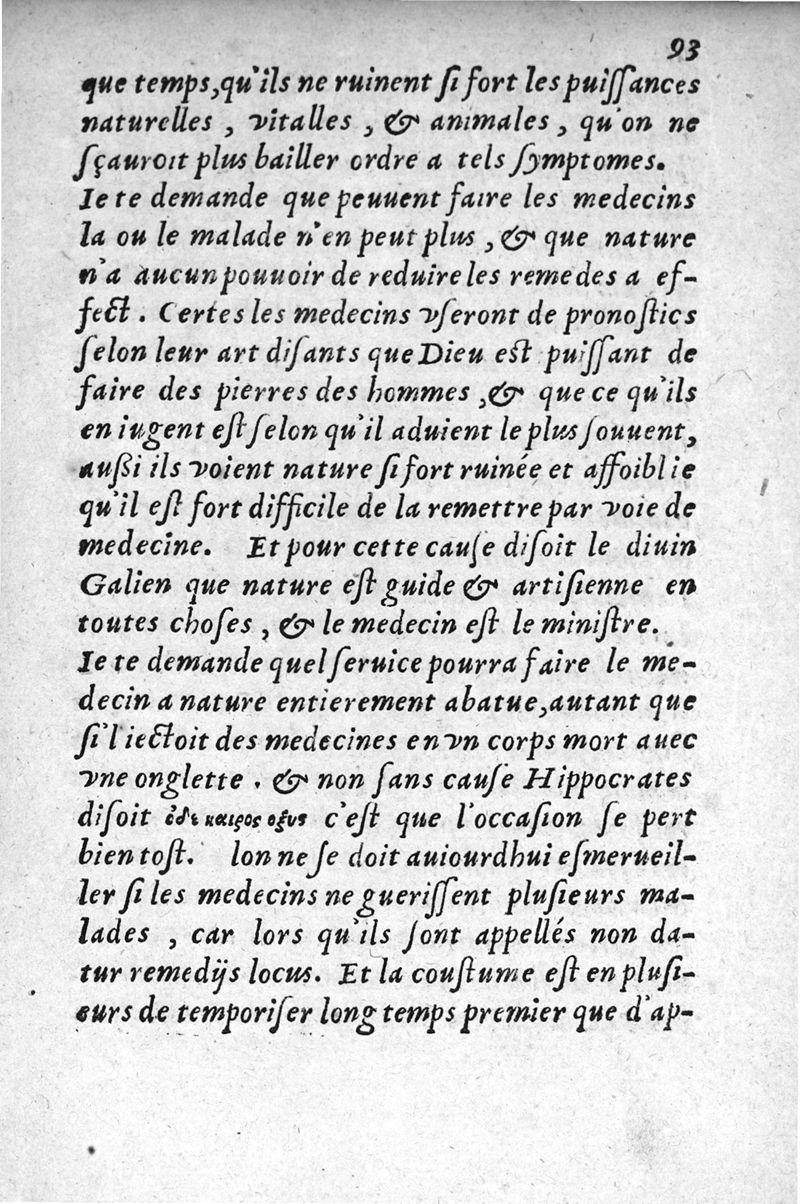 93
que temps,qu'ils ne ruinent ſi fort les puiſſances
naturelles , vitalles , & animales , qu'on ne
ſçauroit plus bailler ordre a tels ſymptomes.
Ie te demande que peuuent faire les medecins
la ou le malade n'en peut plus , & que nature
n'a aucun pouuoir de reduire les remedes a ef-
fect . Certes les medecins vſeront de pronoſtics
ſelon leur art diſants que Dieu eſt puiſſant de
faire des pierres des hommes ,& que ce qu'ils
en iugent eſt ſelon qu'il aduient le plus ſouuent,
außi ils voient nature ſi fort ruinée et affoiblie
qu'il eſt fort difficile de la remettre par voie de
medecine. Et pour cette cauſe diſoit le diuin
Galien que nature eſt guide & artiſienne en
toutes choſes , & le medecin eſt le miniſtre.
Ie te demande quel ſeruice pourra faire le me-
decin a nature entierement abatue,autant que
ſi'l iectoit des medecines en vn corps mort auec
vne onglette . & non ſans cauſe Hippocrates
diſoit ὁδε καιρος οξυς c'eſt que l'occaſion ſe pert
bien toſt. lon ne ſe doit auiourdhui eſmerueil-
ler ſi les medecins ne gueriſſent pluſieurs ma-
lades , car lors qu'ils ſont appellés non da-
tur remedijs locus. Et la couſtume eſt en pluſi-
eurs de temporiſer long temps premier que d'ap-